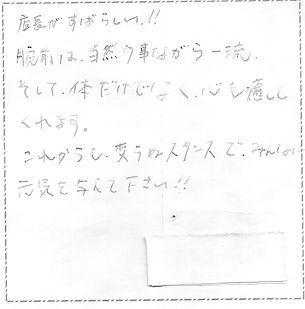 店長がすばらしい!!
腕前は、当然の事ながら一流、
そして、体だけでなく、心も癒して
くれます。
これからも、変らぬスタンスで、みんなに
元気を与えて下さい!!